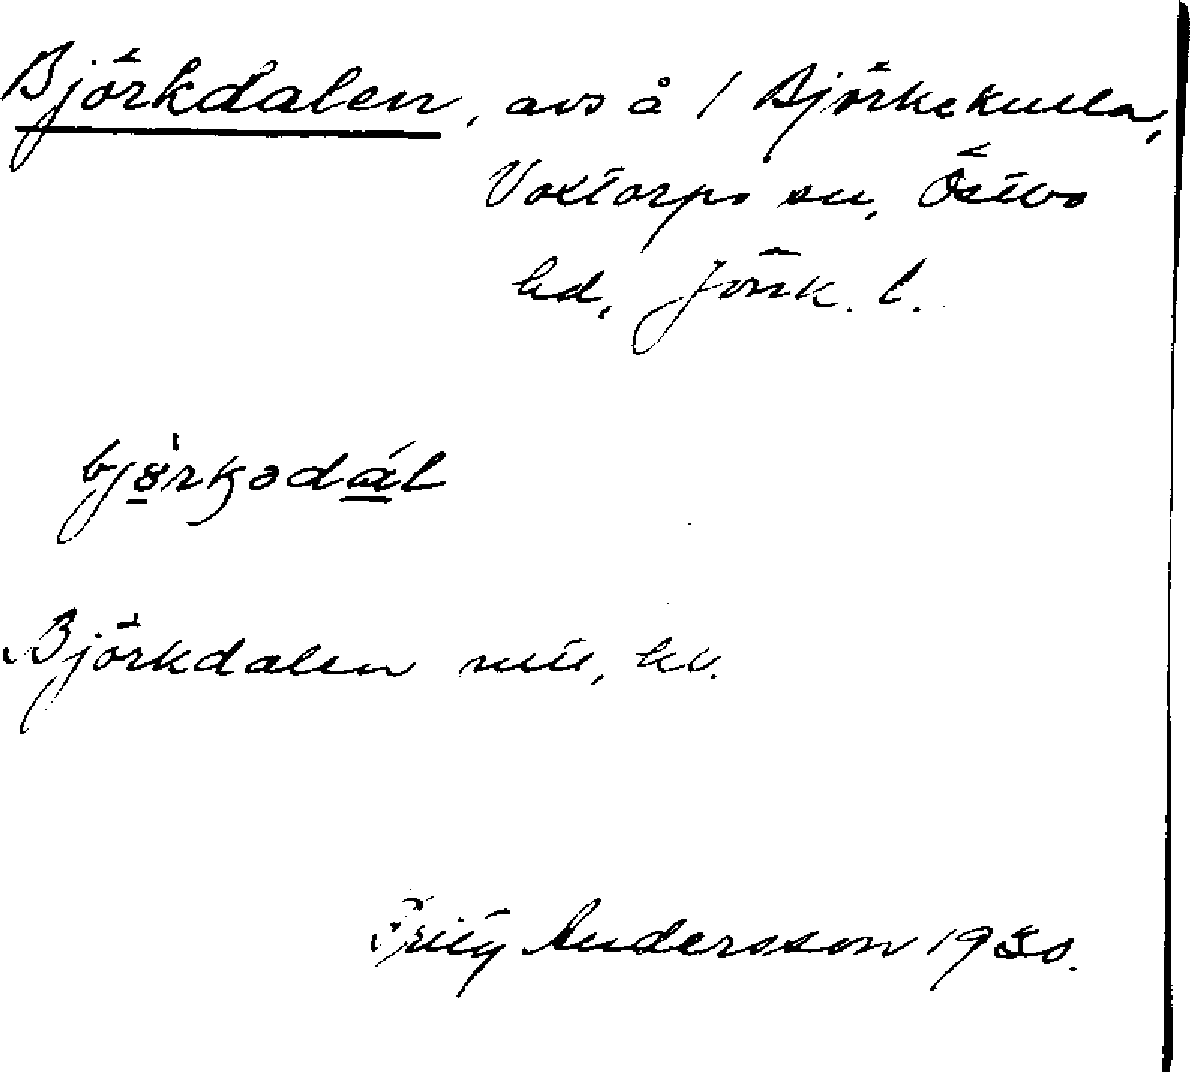 Björkdalen, avs å 1 Björkekulla,
Voxtorps sn, Östbo
hd, Jönk. l.
björkədál
Björkdalen
Andersson 1930.